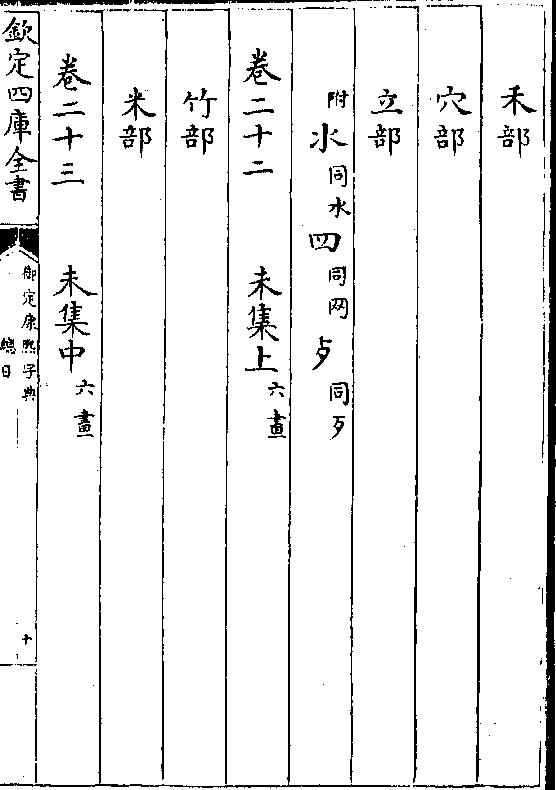 禾部
穴部
立部
附氺同水罒同网歺同歹
卷二十二 未集上六畫
竹部
米部
卷二十三 未集中六畫
欽定四庫全書
御定康熙字典
總目
十